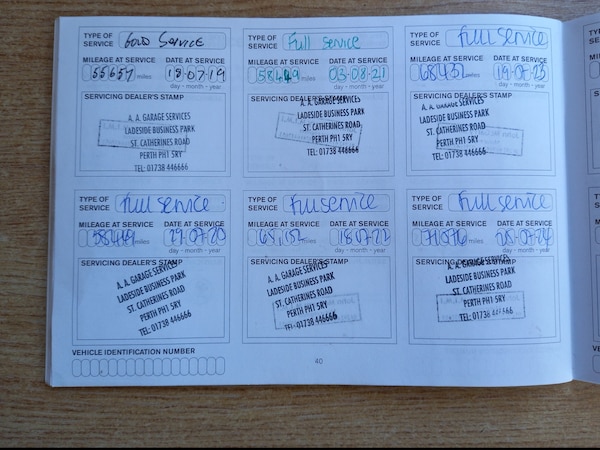 TYPE OF SERVICE GOLD SERVICE
MILEAGE AT SERVICE DATE AT SERVICE
55657 miles 18-07-19
day - month - year
SERVICING DEALER'S STAMP
A. A. GARAGE SERVICES
LADESIDE BUSINESS PARK
ST. CATHERINES ROAD
PERTH PH1 5RY
TEL: 01738 446666
TYPE OF SERVICE Full Service
MILEAGE AT SERVICE DATE AT SERVICE
miles 03-08-21
day - month - year
SERVICING DEALER'S STAMP
A. A. GARAGE SERVICES
LADESIDE BUSINESS PARK
ST. CATHERINES ROAD
PERTH PH1 5RY
TEL: 01738 446666
TYPE OF SERVICE Full Service
MILEAGE AT SERVICE DATE AT SERVICE
68437 miles 19-07-23
day - month - year
SERVICING DEALER'S STAMP
A. A. GARAGE SERVICES
LADESIDE BUSINESS PARK
ST. CATHERINES ROAD
PERTH PH1 5RY
TEL: 01738 446666
TYPE OF SERVICE Full Service
MILEAGE AT SERVICE DATE AT SERVICE
58449 miles 29-07-20
day - month - year
SERVICING DEALER'S STAMP
A. A. GARAGE SERVICES
LADESIDE BUSINESS PARK
ST. CATHERINES ROAD
PERTH PH1 5RY
TEL: 01738 446666
TYPE OF SERVICE Full Service
MILEAGE AT SERVICE DATE AT SERVICE
65,152 miles 18-07-22
day - month - year
SERVICING DEALER'S STAMP
A. A. GARAGE SERVICES
LADESIDE BUSINESS PARK
ST. CATHERINES ROAD
PERTH PH1 5RY
TEL: 01738 446666
TYPE OF SERVICE Full Service
MILEAGE AT SERVICE DATE AT SERVICE
miles
day - month - year
SERVICING DEALER'S STAMP
A. A. GARAGE SERVICES
LADESIDE BUSINESS PARK
ST. CATHERINES ROAD
PERTH PH1 5RY
TEL: 01738 446666
VEHICLE IDENTIFICATION NUMBER
40